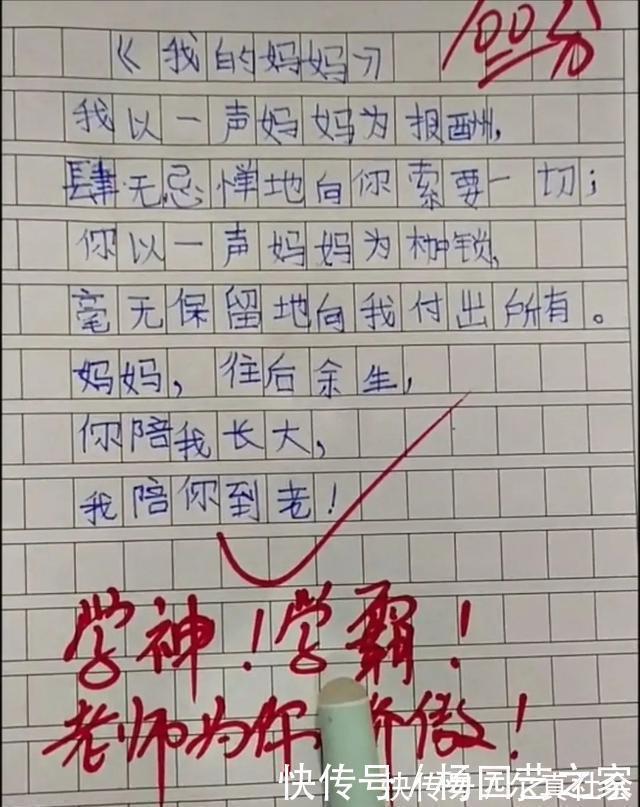 《我的妈妈》
100分
我以一声妈妈为报酬,
肆无忌惮地向你索要一切;
你以一声妈妈为枷锁,
毫无保留地向我付出所有。
妈妈,往后余生,
你陪我长大,
我陪你到老!
学神!学霸!
老师为你 傲!
快传号/杨园艺之家
快传号/